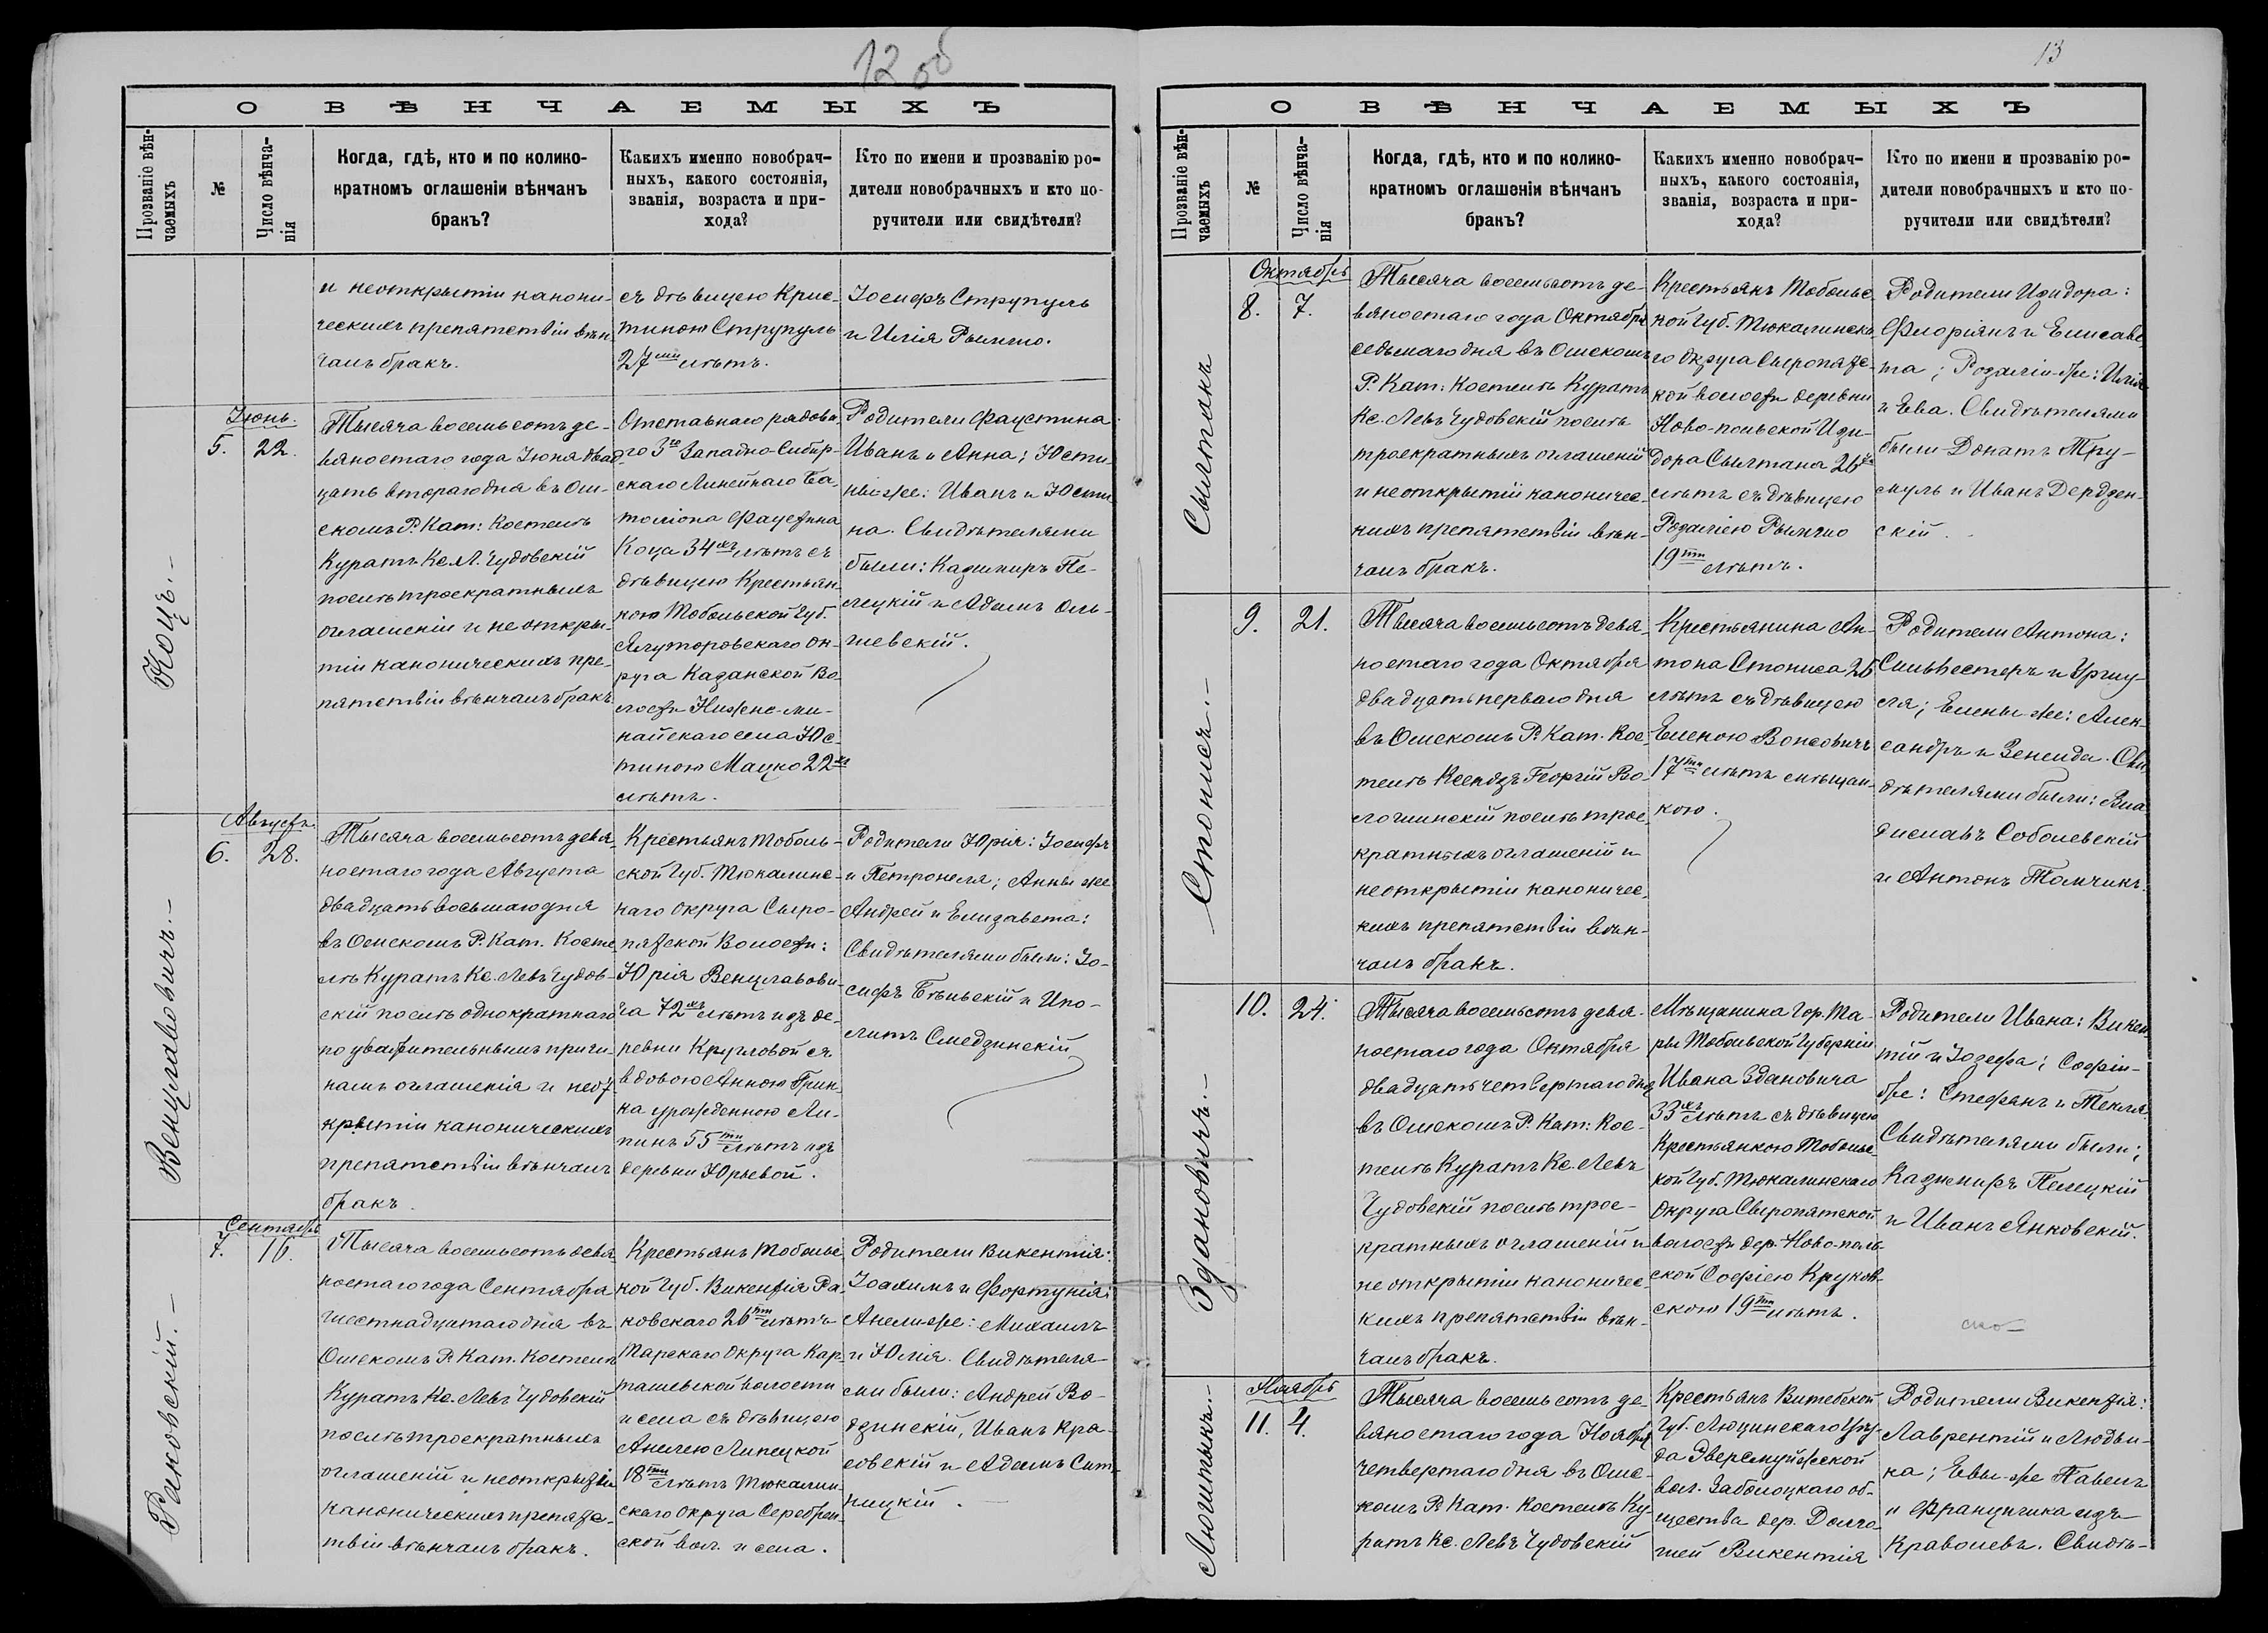 12 об
О ВѢНЧАЕМЫХЪ
Прозваніе вѣн-
чаемыхъ
№
Число вѣнча-
нія
Когда, гдѣ, кто и по колико-
кратномъ оглашеніи вѣнчанъ
бракъ?
Какихъ именно новобрач-
ныхъ, какого состоянія,
званія, возраста и при-
хода?
Кто по имени и прозванію ро-
дители новобрачныхъ и кто по-
ручители или свидѣтели?
и неоткрытіи канони-
ческихъ препятствій вѣн
чалъ бракъ.
съ дѣвицею Крис-
тиною Струпуль
27ми лѣтъ.
Іосифъ Струпуль
и Илія Рымшо.
Коцъ.-
Іюнь.
5. 22.
Тысяча восемьсотъ де-
вяностаго года Іюня двад-
цать втораго дня въ Ом-
скомъ Р. Кат: Костелѣ
Куратъ Кс. Л. Чудовскій
послѣ троекратныхъ
оглашеній и неоткры-
тіи каноническихъ пре-
пятствій вѣнчалъ бракъ.
Отставнаго рядова-
го 3го Западно-Сибир-
скаго Линейнаго Ба-
таліона Фаустина
Коца 34хъ лѣтъ съ
дѣвицею Крестьян-
кою Тобольской Губ.
Ялуторовскаго Ок-
руга Казанской Во-
лости Нижне-ми-
найскаго села Юс-
тиною Мацко 22хъ
лѣтъ.
Родители Фаустина:
Иванъ и Анна; Юсти-
ны же: Иванъ и Юсти
на. Свидѣтелями
были: Казимиръ Пе-
лецкій и Адамъ Оль-
шевскій.
Венцлавовичъ.-
Августъ.
6. 28.
Тысяча восемьсотъ девя-
ностаго года Августа
двадцать восьмаго дня
въ Омскомъ Р. Кат. Косте
лѣ Куратъ Кс. Левъ Чудов-
скій послѣ однократнаго
по уважительнымъ причи-
намъ оглашенія и неот-
крытіи каноническихъ
препятствій вѣнчалъ
бракъ.
Крестьянъ Тоболь-
ской Губ. Тюкалинс-
каго Округа Сыро-
пятской Волости:
Юрія Венцлавови-
ча 72хъ лѣтъ изъ де-
ревни Кругловой съ
вдовою Анною Грин-
ка урожденною Ли-
пинъ 55ти лѣтъ изъ
деревни Юрьевой.
Родители Юрія: Іосифъ
и Петронеля; Анны же
Андрей и Елизавета:
Свидѣтелями были: Іо-
сифъ Бѣньскій и Ипо-
литъ Смедзинскій
Раковскій.-
Сентябрь
7. 16.
Тысяча восемьсотъ девя
ностаго года Сентября
шестнадцатаго дня въ
Омскомъ Р. Кат. Костелѣ
Куратъ Кс. Левъ Чудовскій
послѣ троекратныхъ
оглашеній и неоткрытіи
каноническихъ препятс-
твій вѣнчалъ бракъ.
Крестьянъ Тобольс
кой Губ. Викентія Ра-
ковскаго 26ти лѣтъ
Тарскаго Округа Кар-
ташевской волости
и села съ дѣвицею
Анелею Липецкой
18ти лѣтъ Тюкалин-
скаго Округа Серебрян-
ской вол. и села.
Родители Викентія:
Іоахимъ и Фортунія;
Анели же: Михаилъ
и Юлія. Свидѣтеля-
ми были: Андрей Во-
дзинскій, Иванъ Кра-
совскій и Адамъ Сит-
ницкій.
13
О ВѢНЧАЕМЫХЪ
Прозваніе вѣн-
чаемыхъ
№
Число вѣнча-
нія
Когда, гдѣ, кто и по колико-
кратномъ оглашеніи вѣнчанъ
бракъ?
Какихъ именно новобрач-
ныхъ, какого состоянія,
званія, возраста и при-
хода?
Кто по имени и прозванію ро-
дители новобрачныхъ и кто по-
ручители или свидѣтели?
Сылтанъ
Октябрь
8. 7.
Тысяча восемьсотъ де-
вяностаго года Октября
седьмаго дня въ Омскомъ
Р. Кат: Костелѣ Куратъ
Кс. Левъ Чудовскій послѣ
троекратныхъ оглашеній
и неоткрытіи каноничес-
кихъ препятствій вѣн-
чалъ бракъ.
Крестьянъ Тобольс-
кой Губ. Тюкалинска
го Округа Сыропятс-
кой волости деревни
Ново-польской Изи-
дора Сылтана 26
лѣтъ съ дѣвицею
Розаліею Рымшо
19ти лѣтъ.
Родители Изидора:
Флоріянъ и Елисаве
та; Розаліи-же: Илія
и Ева. Свидѣтелями
были Донатъ Тру-
смуль и Иванъ Дердзен-
скій.
Стонисъ.-
9. 21.
Тысяча восемьсотъ девя-
ностаго года Октября
двадцать перваго дня
въ Омскомъ Р. Кат. Кос-
телѣ Ксендзъ Георгій Во-
лотинскій послѣ трое-
кратныхъ оглашеній и
неоткрытіи каноничес-
кихъ препятствій вѣн-
чалъ бракъ.
Крестьянина Ан-
тона Стониса 26
лѣтъ съ дѣвицею
Еленою Вонсовичъ
17ти лѣтъ мѣщан-
кою.
Родители Антона:
Сильвестеръ и Уршу-
ля; Елены-же: Алек-
сандръ и Зенеида. Сви
дѣтелями были: Вла-
диславъ Соболевскій
и Антонъ Томчикъ.
Здановичъ.-
10. 24.
Тысяча восемьсотъ девя-
ностаго года Октября
двадцать четвертаго дня
въ Омскомъ Р. Кат: Кос-
телѣ Куратъ Кс. Левъ
Чудовскій послѣ трое-
кратныхъ оглашеній и
неоткрытіи каноничес-
кихъ препятствій вѣн-
чалъ бракъ.
Мѣщанина гор. Та-
ры Тобольской Губерніи
Ивана Здановича
33хъ лѣтъ съ дѣвицею
Крестьянкою Тобольс
кой Губ. Тюкалинскаго
Округа Сыропятской
волости дер. Ново-поль-
ской Софіею Круков-
скою 19ти лѣтъ.
Родители Ивана: Викен
тій и Іозефа; Софіи-
же: Стефанъ и Текля.
Свидѣтелями были:
Казимиръ Пелецкій
и Иванъ Янковскій.
Люшныкъ.-
Ноябрь
11. 4.
Тысяча восемьсотъ де-
вяностаго года Ноября
четвертаго дня въ Омс-
комъ Р. Кат. Костелѣ Ку-
ратъ Кс. Левъ Чудовскій
Крестьянъ Витебской
Губ. Люцинскаго Уѣз-
да Звережуйжской
вол. Заболоцкаго об-
щества дер. Долго-
шеи Викентія
Родители Викентія:
Лаврентій и Людви-
ка; Евы-же Павелъ
и Францишка изъ
Краволевъ. Свидѣ-